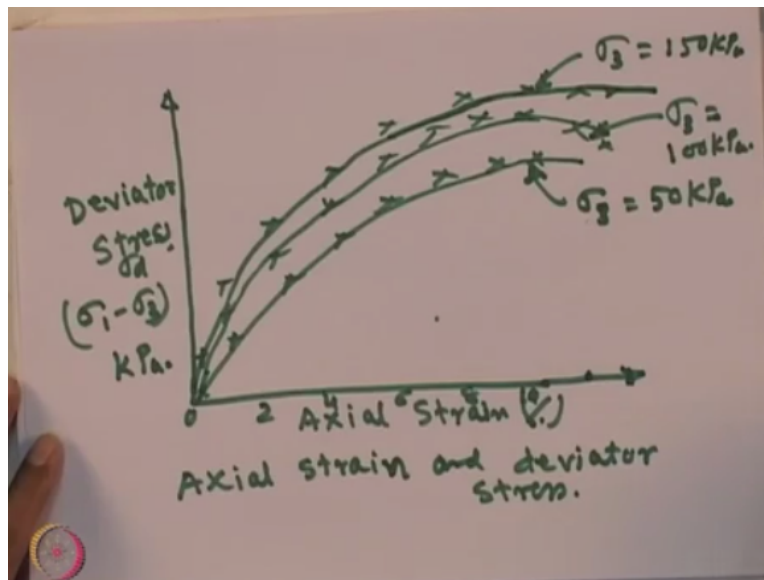 σ3 = 150 kPa
σ3 =
100 kPa.
σ3 = 50 kPa
Deviator
Stress.
σd
(σ1 - σ3)
kPa.
0 2 4 6 8
Axial Strain (%)
Axial strain and deviator
stress.